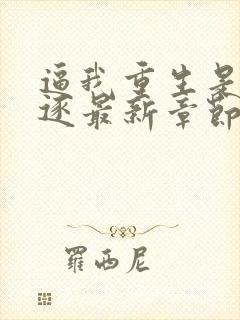 逼我重生是
逐最新章節
羅西尼